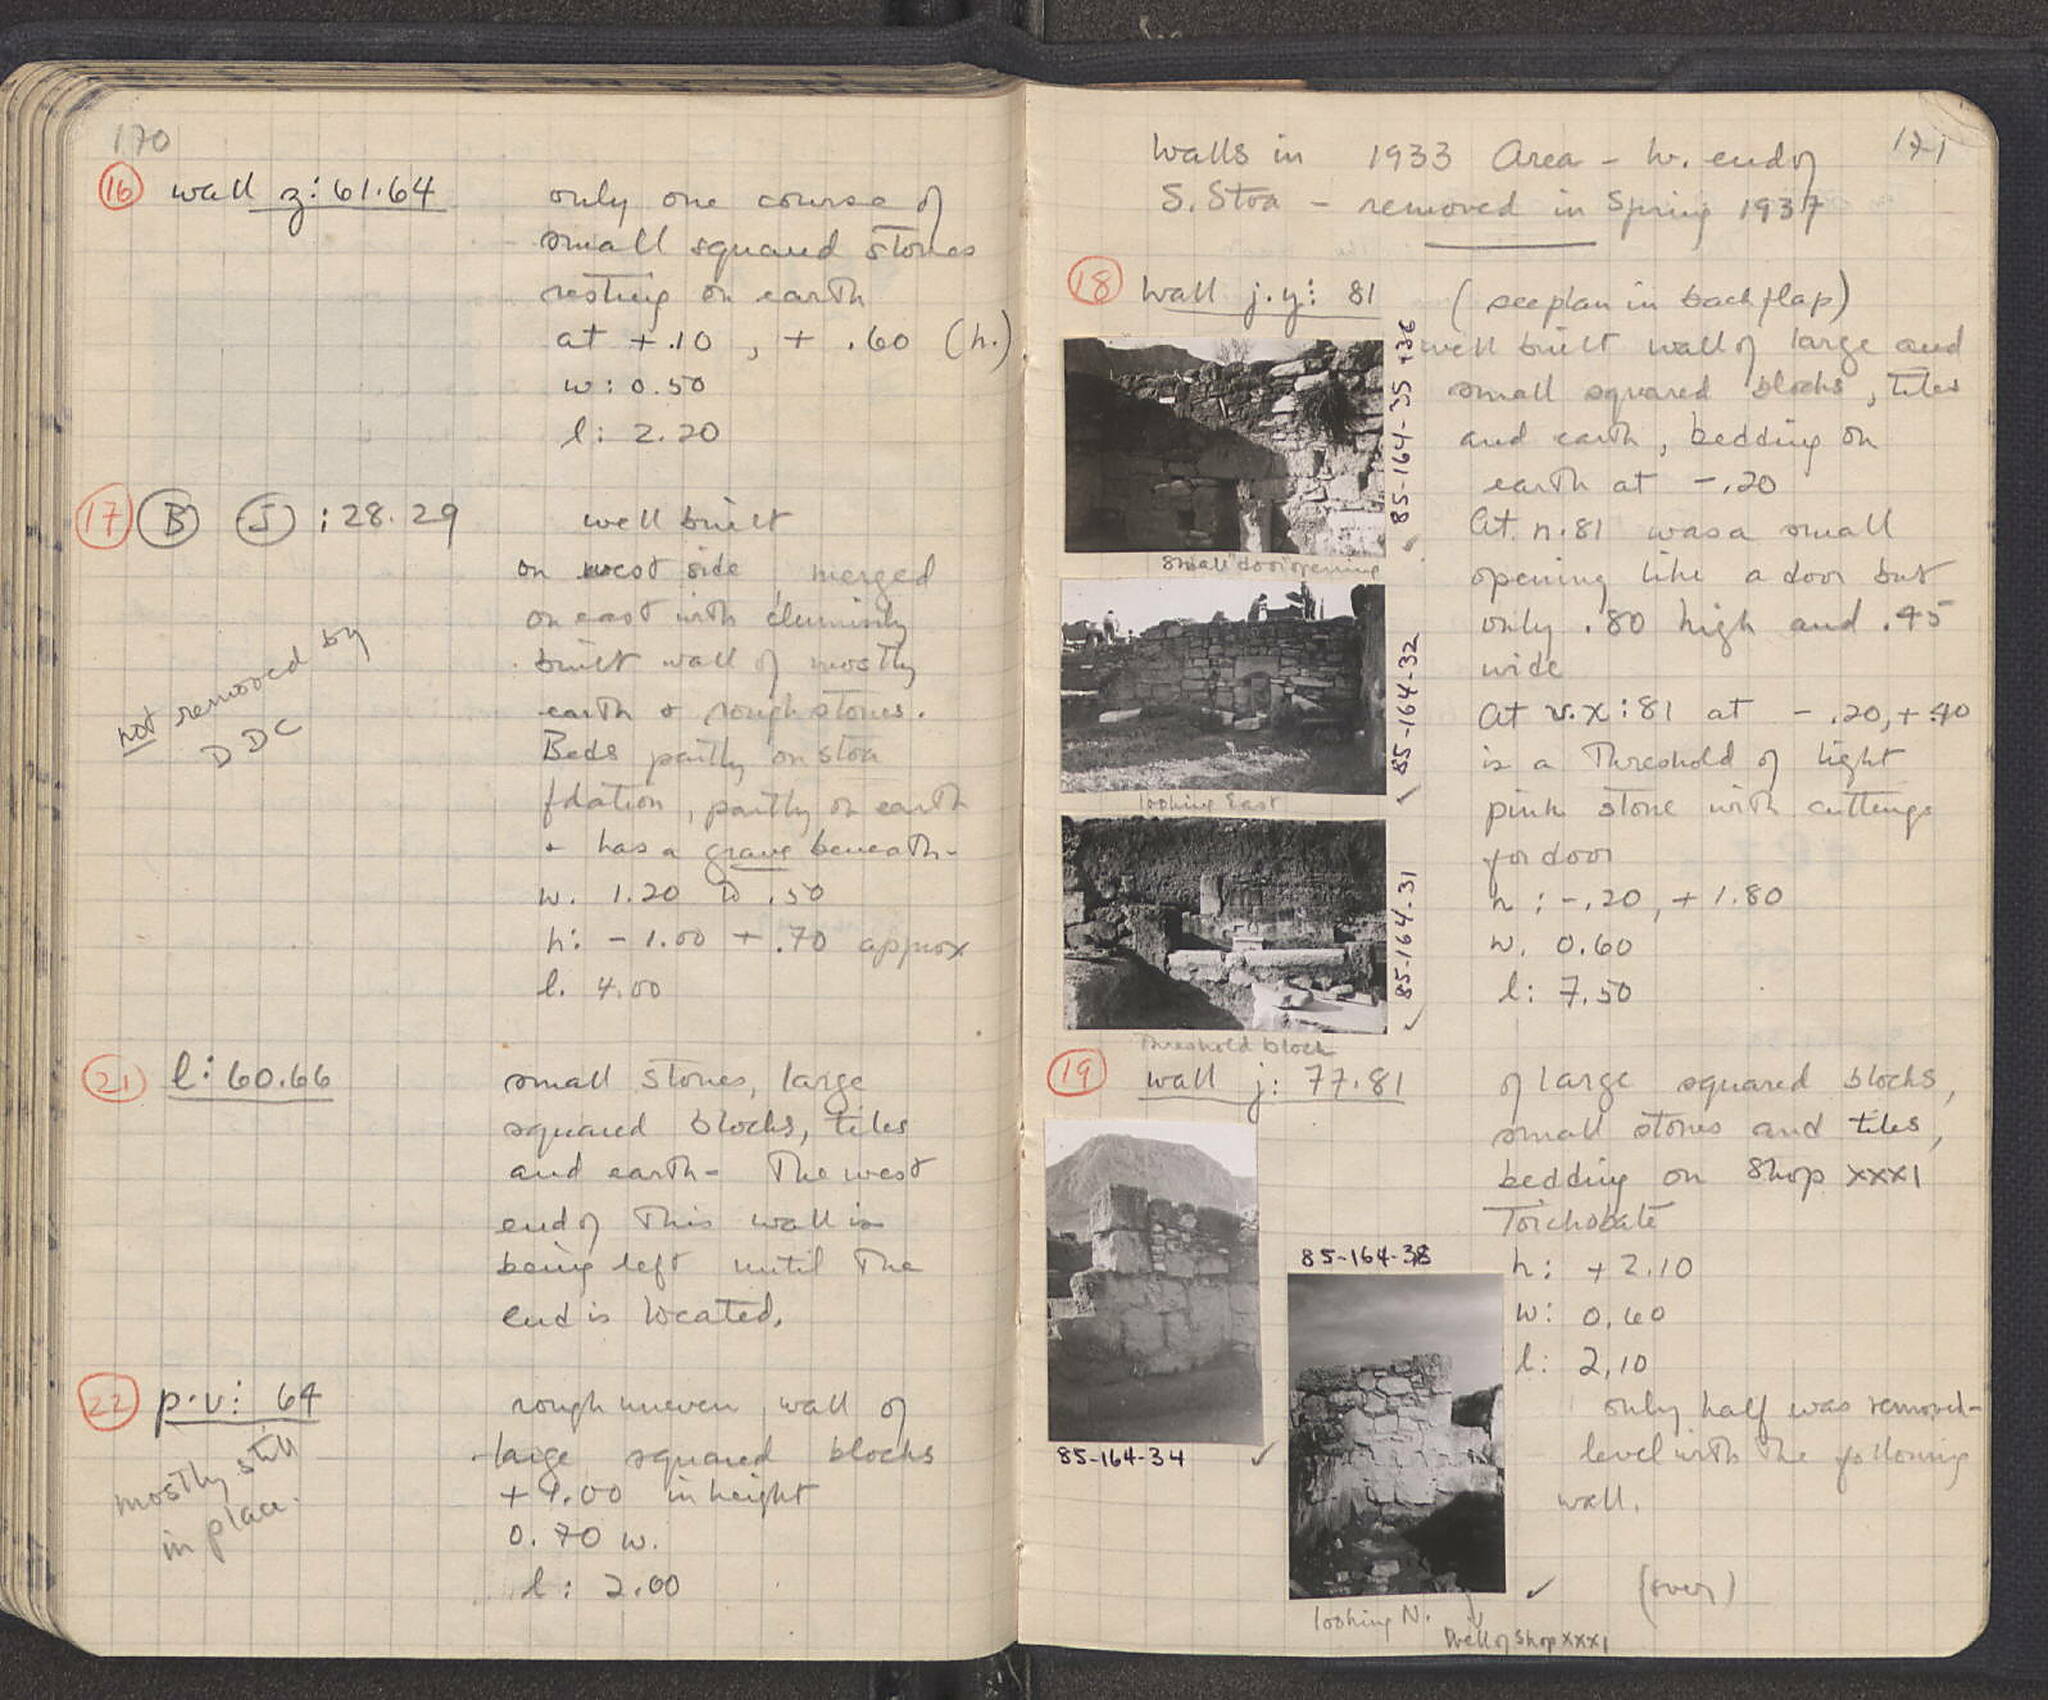 170
16 wall z: 61.64
only one course of
small squared stones
resting on earth
at +.10, + .60 (h.)
w: 0.50
l: 2.20
17 B J : 28.29
well built
on west side, merged
on east with clumsily
built wall of mostly
earth + rough stones.
Beds partly on stoa
fdation, partly on earth
+ has a grave beneath-
w. 1.20 to .50
h: - 1.00 + .70 approx
l. 4.00
not removed by
DDC
21 l: 60.66
small stones, large
squared blocks, tiles
and earth- The west
end of this wall is
being left until the
end is located.
22 p.v: 64
rough uneven wall of
large squared blocks
+ 1.00 in height
0.70 w.
l: 2.00
mostly still
in place.
171
Walls in 1933 Area - W. end of
S. Stoa - removed in Spring 1937
18 Wall j.y: 81
(see plan in back flap)
well built wall of large and
small squared blocks, tiles
and earth, bedding on
earth at -.20
At n.81 was a small
opening like a door but
only .80 high and .45
wide
At v.x: 81 at - .20, +.40
is a Threshold of light
pink stone with cuttings
for door
h: -.20, + 1.80
w. 0.60
l: 7.50
85-164-35 +36
small "door" opening
85-164-32
looking East
85-164-31
Threshold block
19 wall j: 77.81
of large squared blocks,
small stones and tiles,
bedding on Shop XXXI
Toichobate
h: + 2.10
w: 0.60
l: 2.10
only half was removed-
level with the following
wall.
85-164-34
looking N.
Well of Shop XXXI
(over)